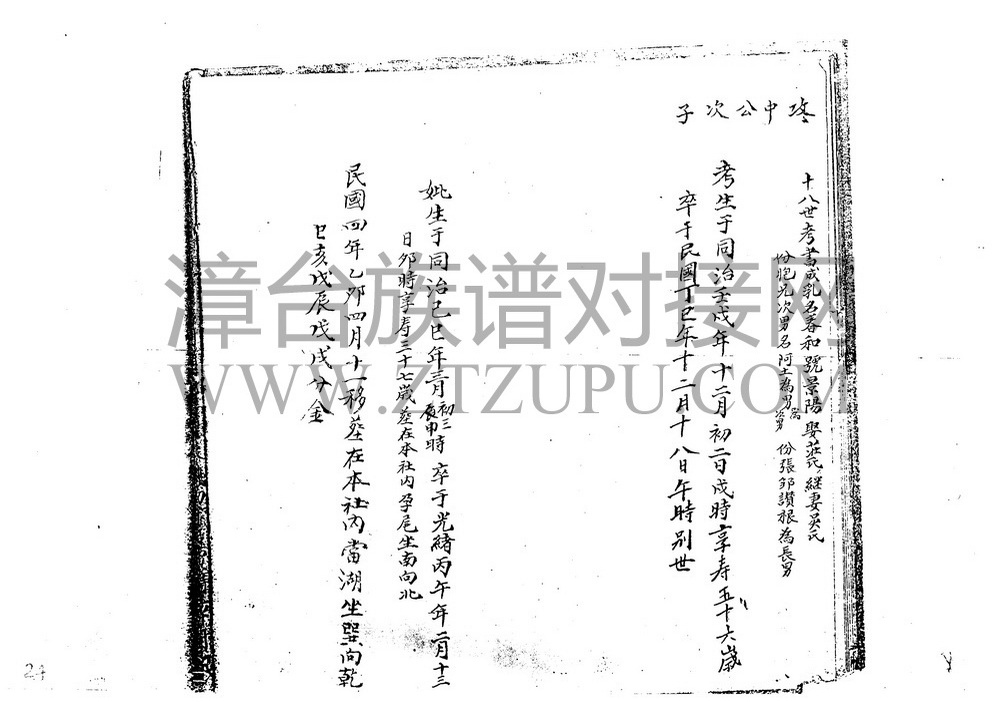 珎中公次子
十八世考書成乳名春和號景陽娶莊氏継妻吳氏
份胞兄次男名阿土為男為次男份張邹讃根為長男
考生于同治壬戌年十二月初二日戌時享寿五十六歲
卒于民國丁巳年十二月十八日午時别世
妣生于同治己巳年三月初三夜申時卒于光緒丙午年二月十三
日夘時享寿三十七歲塟在本社内孕尾坐南向北
民國四年乙夘四月十一移塟在本社内當湖坐巽向乾
巳亥戊辰戊戌分金
漳台族谱对接网
WWW.ZTZUPU.COM
24